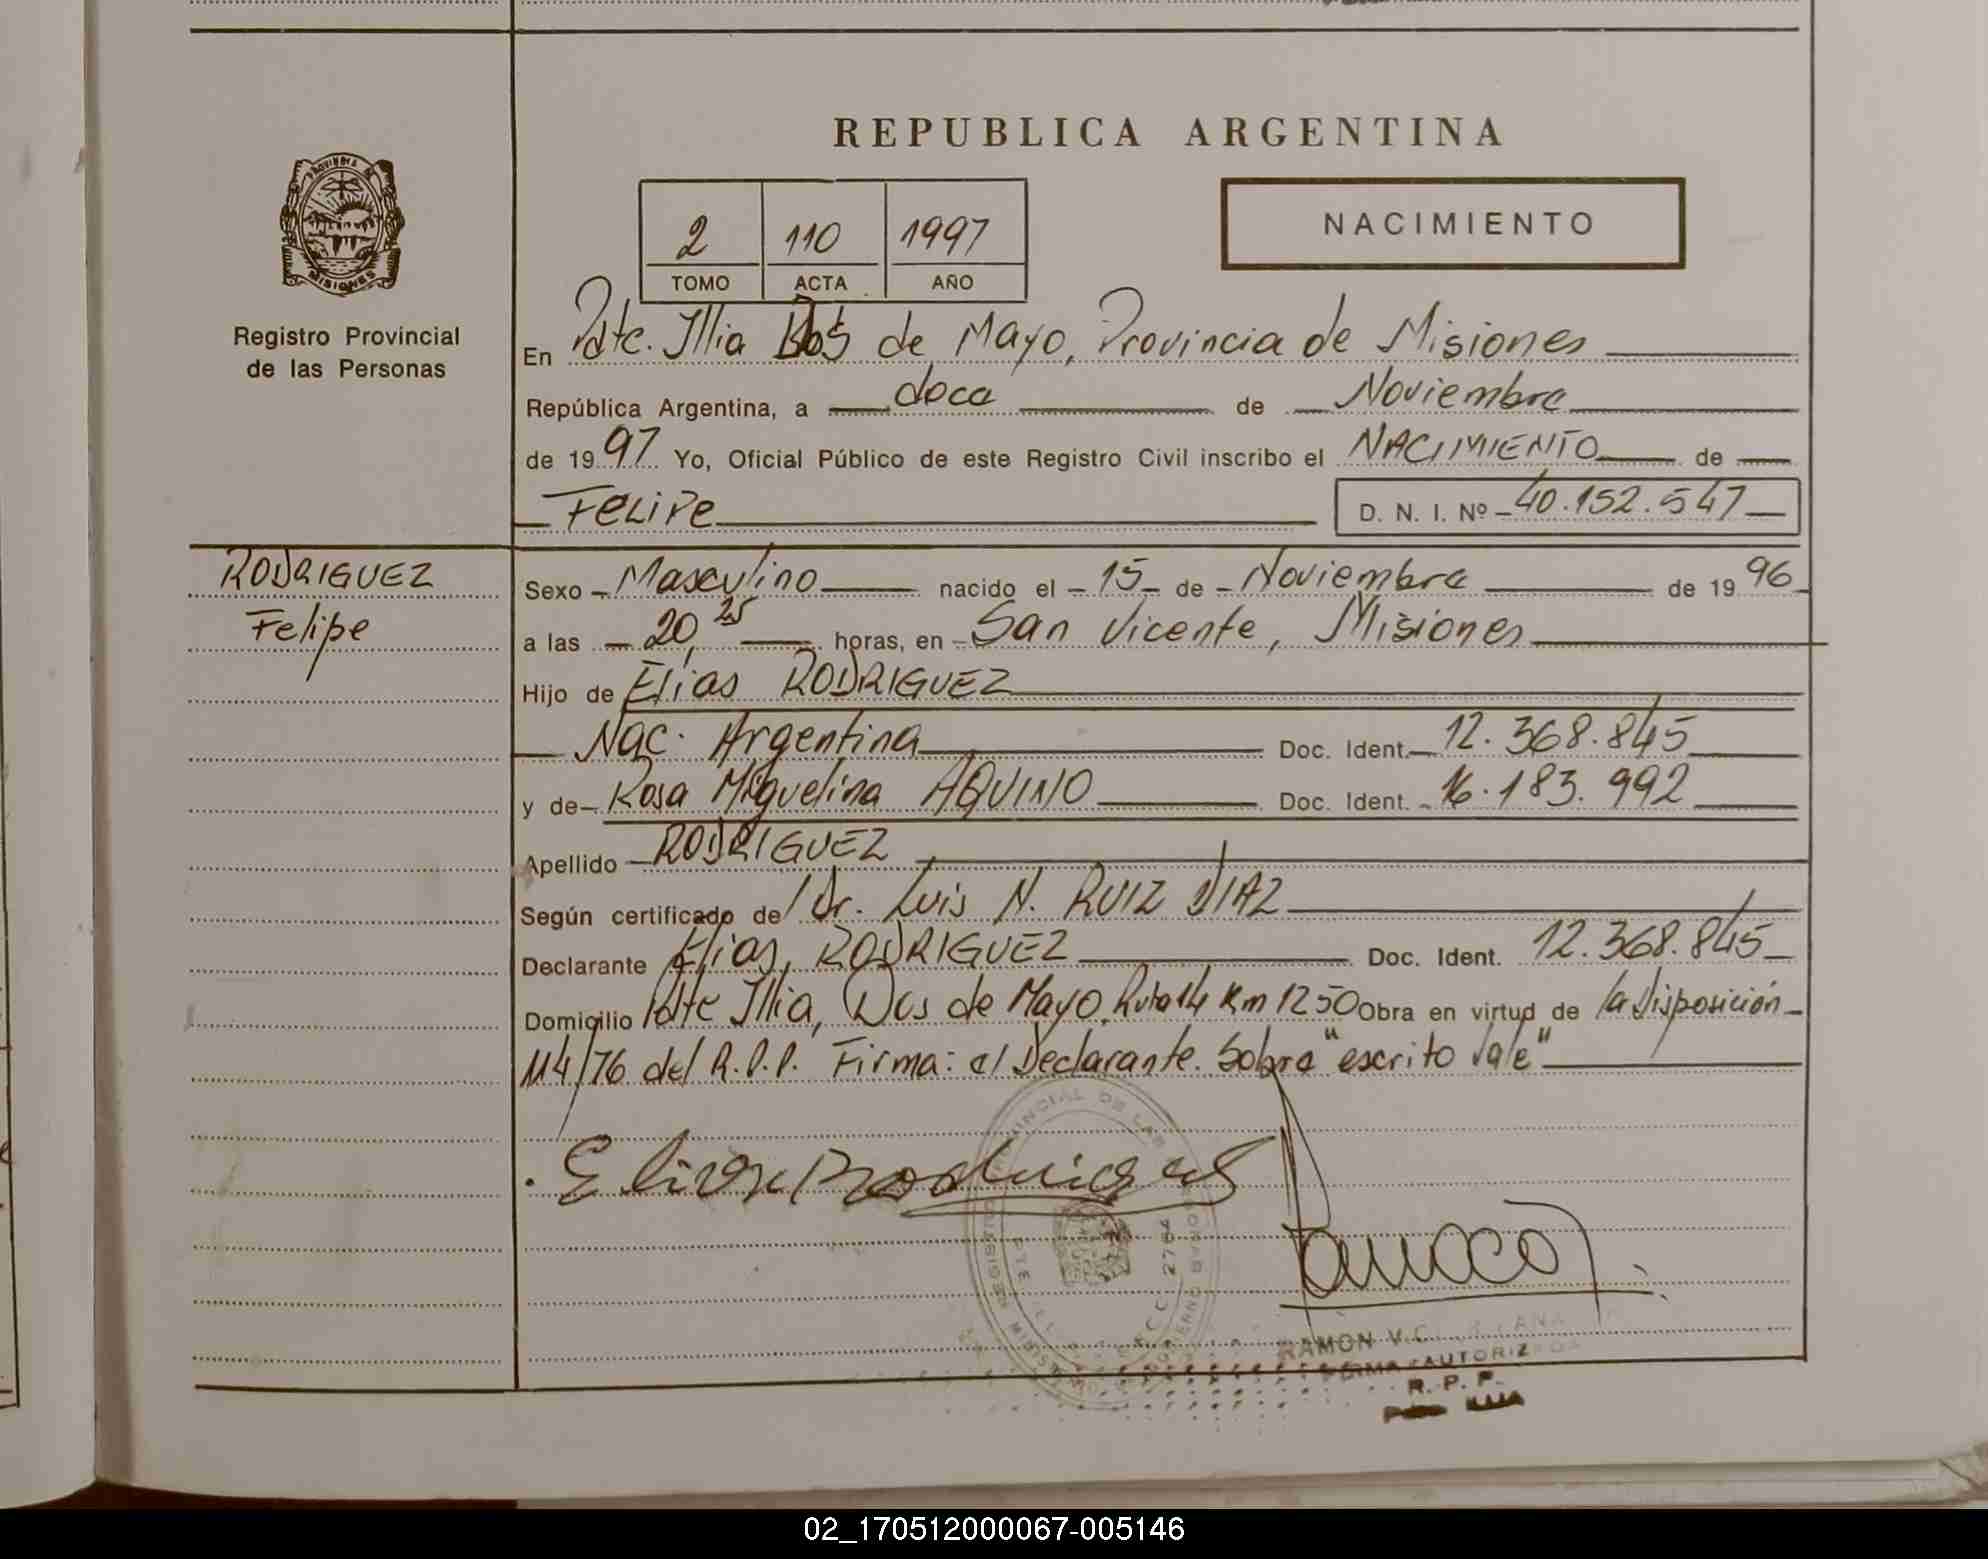 REPUBLICA ARGENTINA
PROVINCIA DE
MISIONES
Registro Provincial
de las Personas
2 110 1997
TOMO ACTA AÑO
NACIMIENTO
En Pdte. Illia Dos de Mayo, Provincia de Misiones
República Argentina, a doce de Noviembre
de 1997 Yo, Oficial Público de este Registro Civil inscribo el NACIMIENTO de
Felipe D. N. I. Nº 40.152.547
RODRIGUEZ
Felipe
Sexo Masculino nacido el 15 de Noviembre de 1996
a las 20,25 horas, en San Vicente, Misiones
Hijo de Elias RODRIGUEZ
Nac. Argentina Doc. Ident. 12.368.845
y de Rosa Miguelina AQUINO Doc. Ident. 16.183.992
Apellido RODRIGUEZ
Según certificado de Dr. Luis N. RUIZ DIAZ
Declarante Elias, RODRIGUEZ Doc. Ident. 12.368.845
Domicilio Pdte Illia, Dos de Mayo, Ruta 14 Km 1250 Obra en virtud de la disposición
114/76 del R.P.P. Firma: el Declarante. Sobre "escrito Vale"
Elias Rodriguez
RAMON V.
FIRMA AUTORIZADA
R. P. P.
ILLIA
02_170512000067-005146